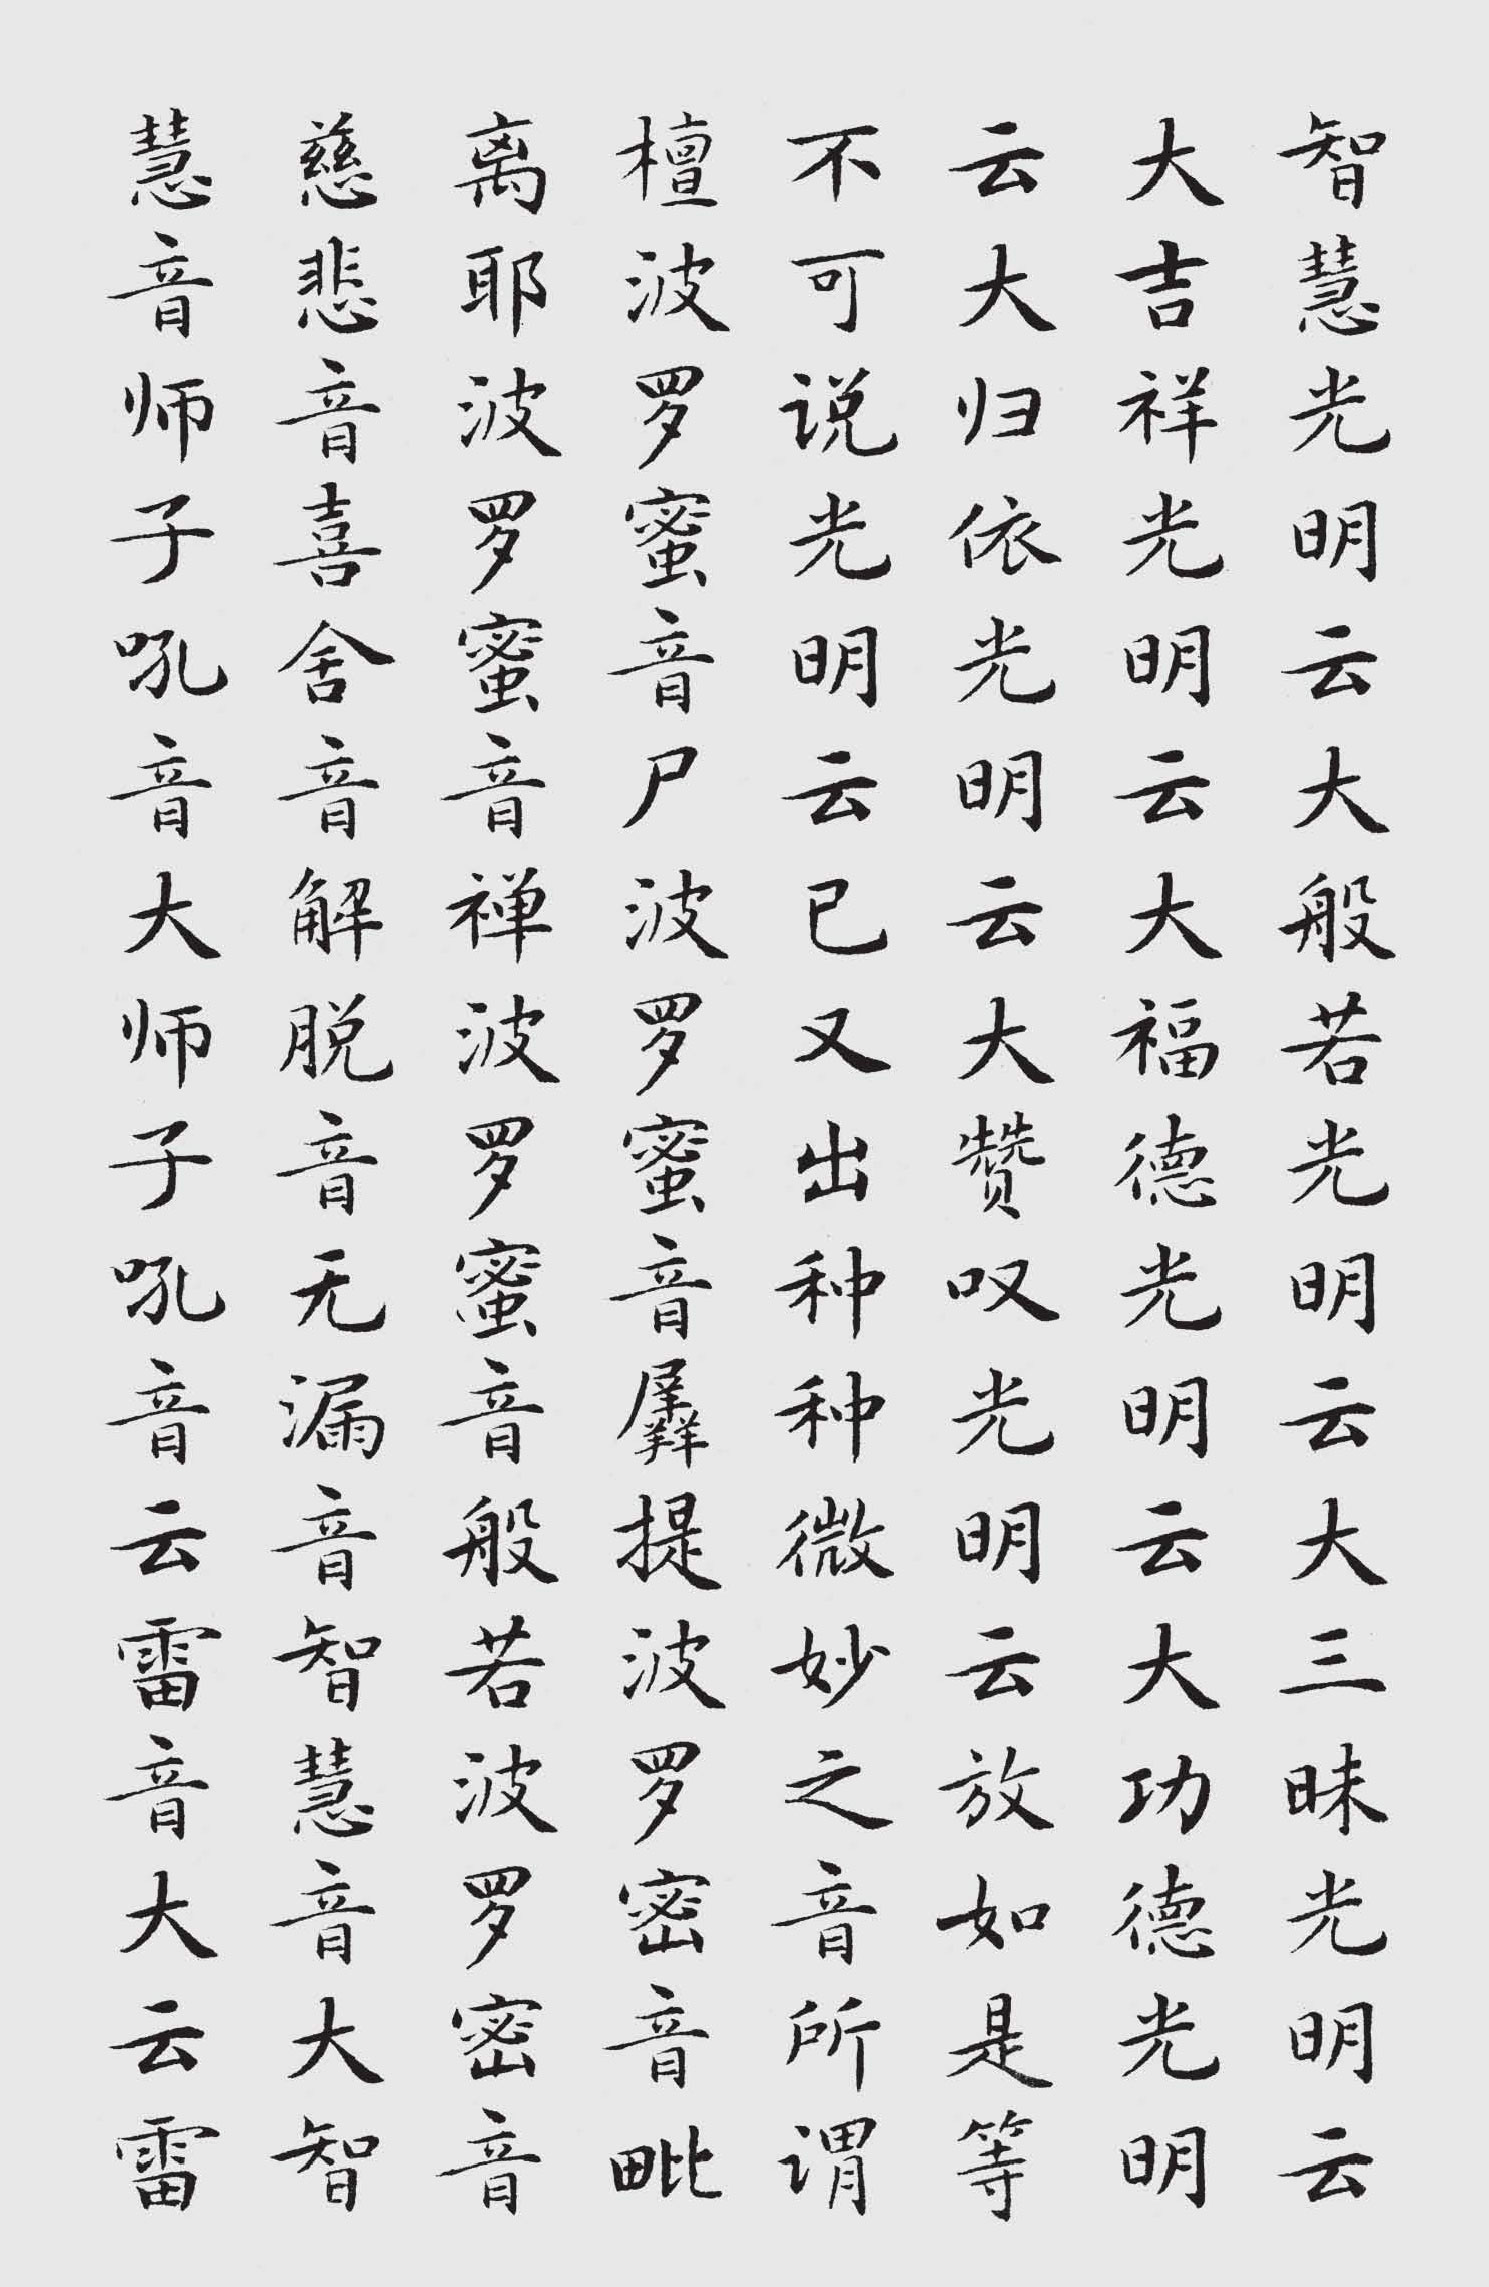 智慧光明云大般若光明云大三昧光明云
大吉祥光明云大福德光明云大功德光明
云大归依光明云大赞叹光明云放如是等
不可说光明云已又出种种微妙之音所谓
檀波罗蜜音尸波罗蜜音羼提波罗密音毗
离耶波罗蜜音禅波罗蜜音般若波罗密音
慈悲音喜舍音解脱音无漏音智慧音大智
慧音师子吼音大师子吼音云雷音大云雷